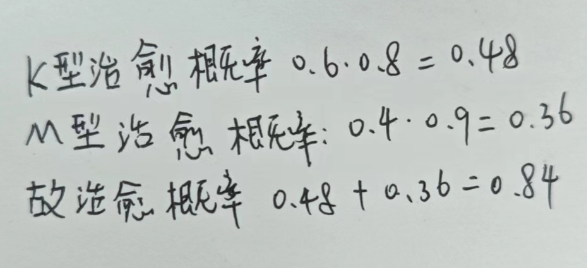 K型治愈概率 0.6·0.8=0.48
M型治愈概率:0.4·0.9=0.36
故治愈概率 0.48+0.36=0.84